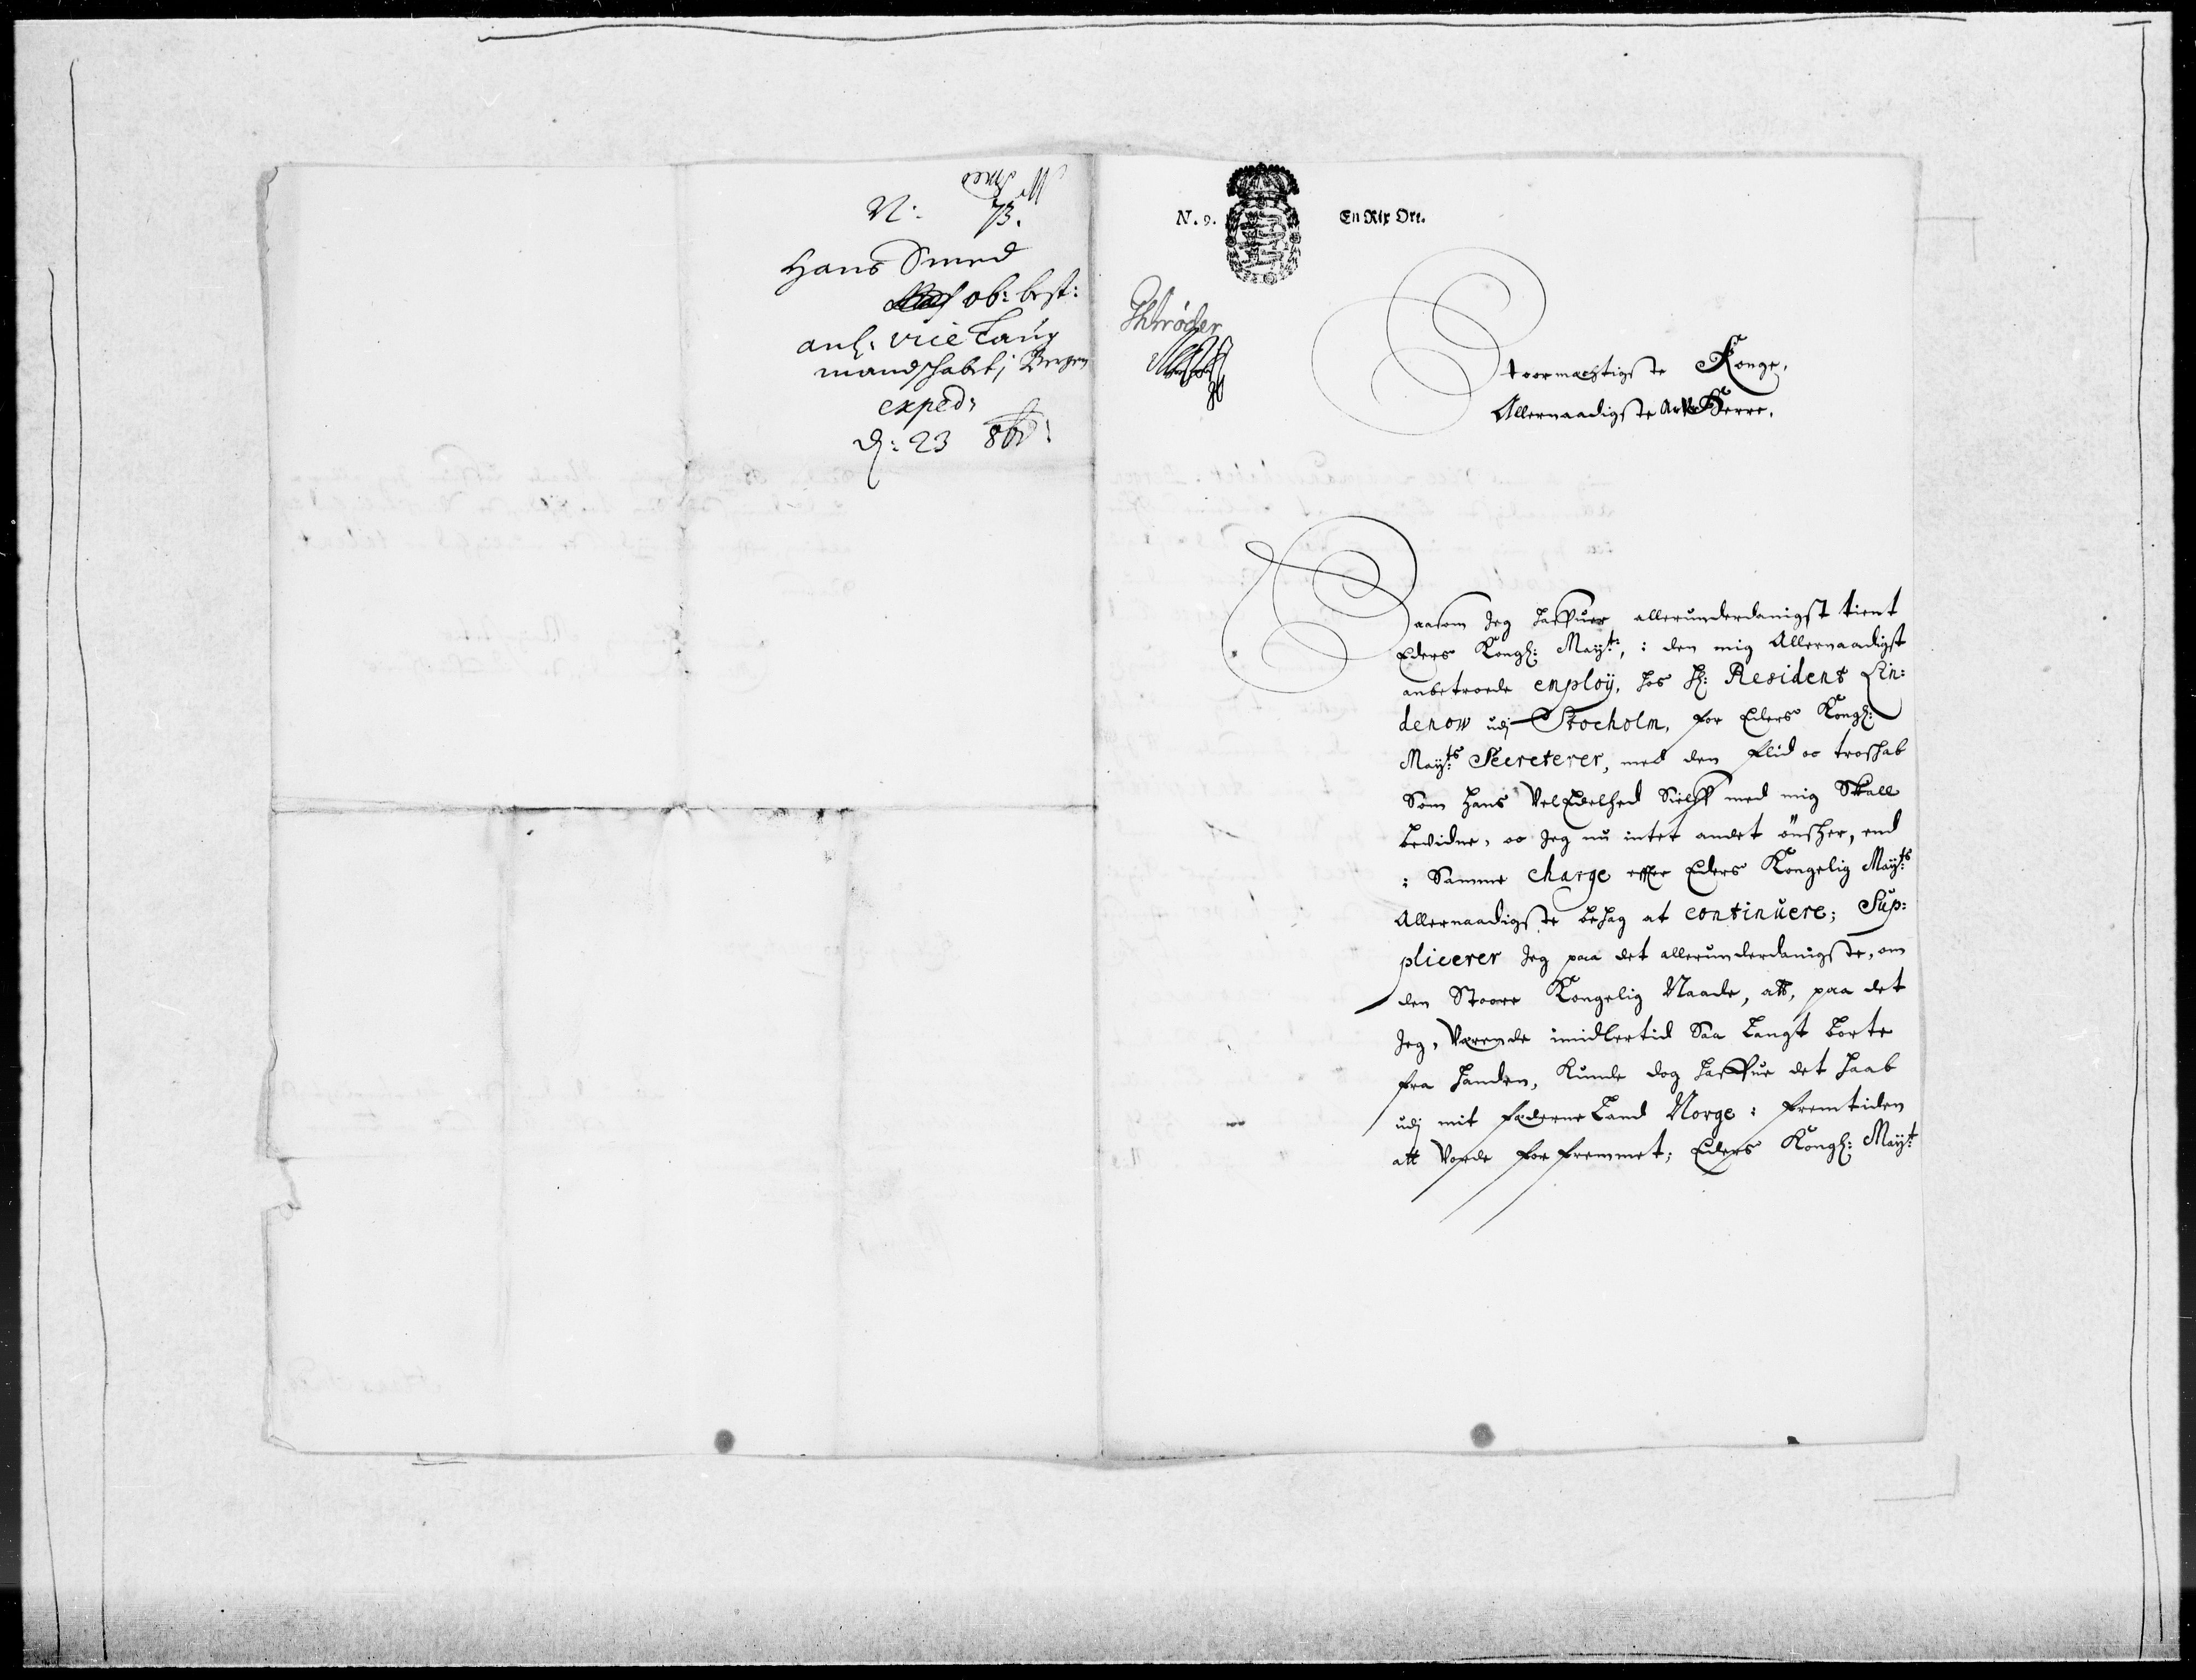 Smed
N: 73.
Hans Smed
ob: best:
anl: vice Laug
mandskabet i Bergen
exped:
d: 23 8br:
N. 9. En Rix Ort.
Schrøder
Stoormægtigste Konge,
Allernaadigste Arfve Herre.
Saasom Jeg haffuer allerunderdanigst tient
Eders Kongl: Mayt:, i den mig Allernaadigst
anbetroede employ, hos H: Resident Lin:
denow udj Stocholm, for Eders Kongl:
Mayts: Secreterer, med den flid oc troskab
Som Hans VelEdelhed Sielff med mig Skall
bevidne, oc Jeg nu intet andet önsker, end
i Samme charge effter Eders Kongelig Mayts:
Allernaadigste behag at continuere; Sup:
plicerer Jeg paa det allerunderdanigste, om
den Stoore Kongelig Naade, att, paa det
Jeg, Værende imidlertid Saa Langt borte
fra Handen, Kunde dog haffue det Haab
udj mit fæderne Land Norge i fremtiden
att Vorde forfremmet; Eders Kongl: Mayt: